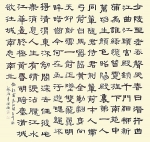 少陵野老吞聲哭春日潛行
曲江曲江頭宮殿鎖千門細
柳新蒲為誰綠憶昔霓旌下南苑
苑中萬物生顏色昭陽殿裏第一人
同輦隨君侍君側輦前才人帶
弓箭白馬嚼齧黃金勒翻身向
天仰射雲一笑正墜雙飛翼明
眸皓齒今何在血污遊魂歸不
得清渭東流劍閣深去住彼此無
消息人生有情淚沾臆江水
江花豈終極黃昏胡騎塵滿城
欲往城南望城北